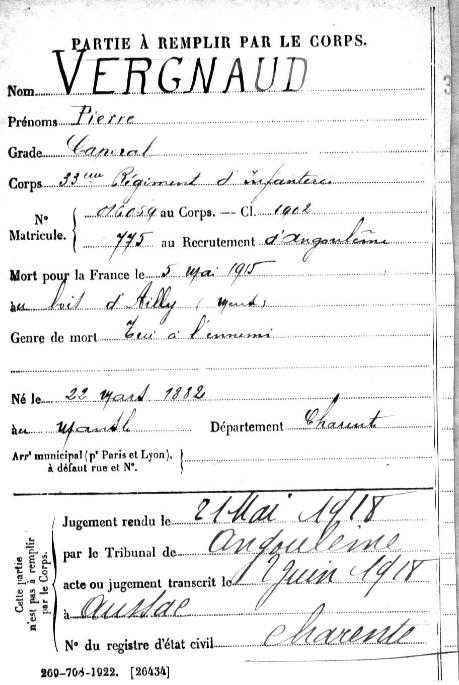 PARTIE À REMPLIR PAR LE CORPS.
Nom VERGNAUD
Prénoms Pierre
Grade Caporal
Corps 33eme Régiment d'Infanterie
N° Matricule. { 016059 au Corps. — Cl. 1902
775 au Recrutement d'Angoulême
Mort pour la France le 5 mai 1915
au bois d'Ailly (Meuse)
Genre de mort Tué à l'ennemi
Né le 22 mars 1882
à Mansle Département Charente
Arrt municipal (pr Paris et Lyon), à défaut rue et N°.
Cette partie n'est pas à remplir par le Corps.
Jugement rendu le 21 Mai 1918
par le Tribunal de Angoulême
acte ou jugement transcrit le Juin 1918
à Aussac
N° du registre d'état civil Charente
269-708-1922. [26434]